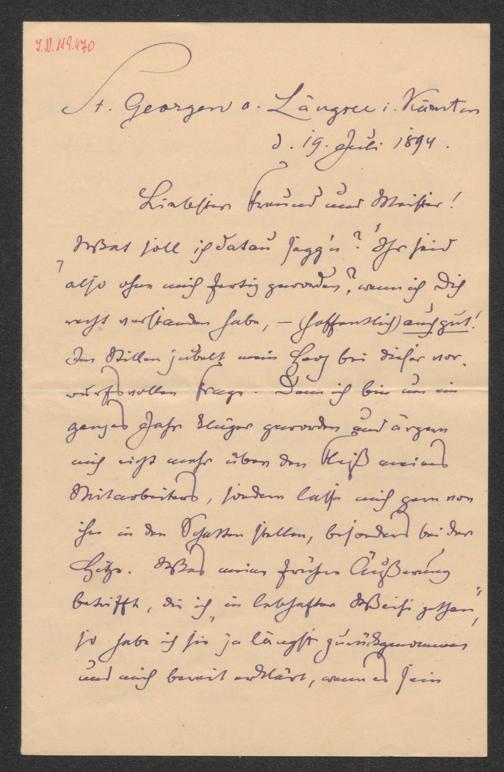 I.N. 119.470
St. Georgen a. Längsee i. Kärnten
d. 19. Juli 1894.
Liebster Freund und Meister!
„Wat soll ik datau segg'n?" Ihr seid
also ohne mich fertig geworden, wenn ich Dich
recht verstanden habe, – (hoffentlich) auch gut!
Im Stillen jubelt mein Herz bei dieser vor-
wurfsvollen Frage. Denn ich bin um ein
ganzes Jahr klüger geworden und ärgere
mich nicht mehr über den Fleiß meines
Mitarbeiters, sondern lasse mich gern von
ihm in den Schatten stellen, besonders bei der
Hitze. Was meine frühere Äußerung
betrifft, die ich „in lebhafter Weise gethan",
so habe ich sie ja längst zurückgenommen
und mich bereit erklärt, wenn es sein